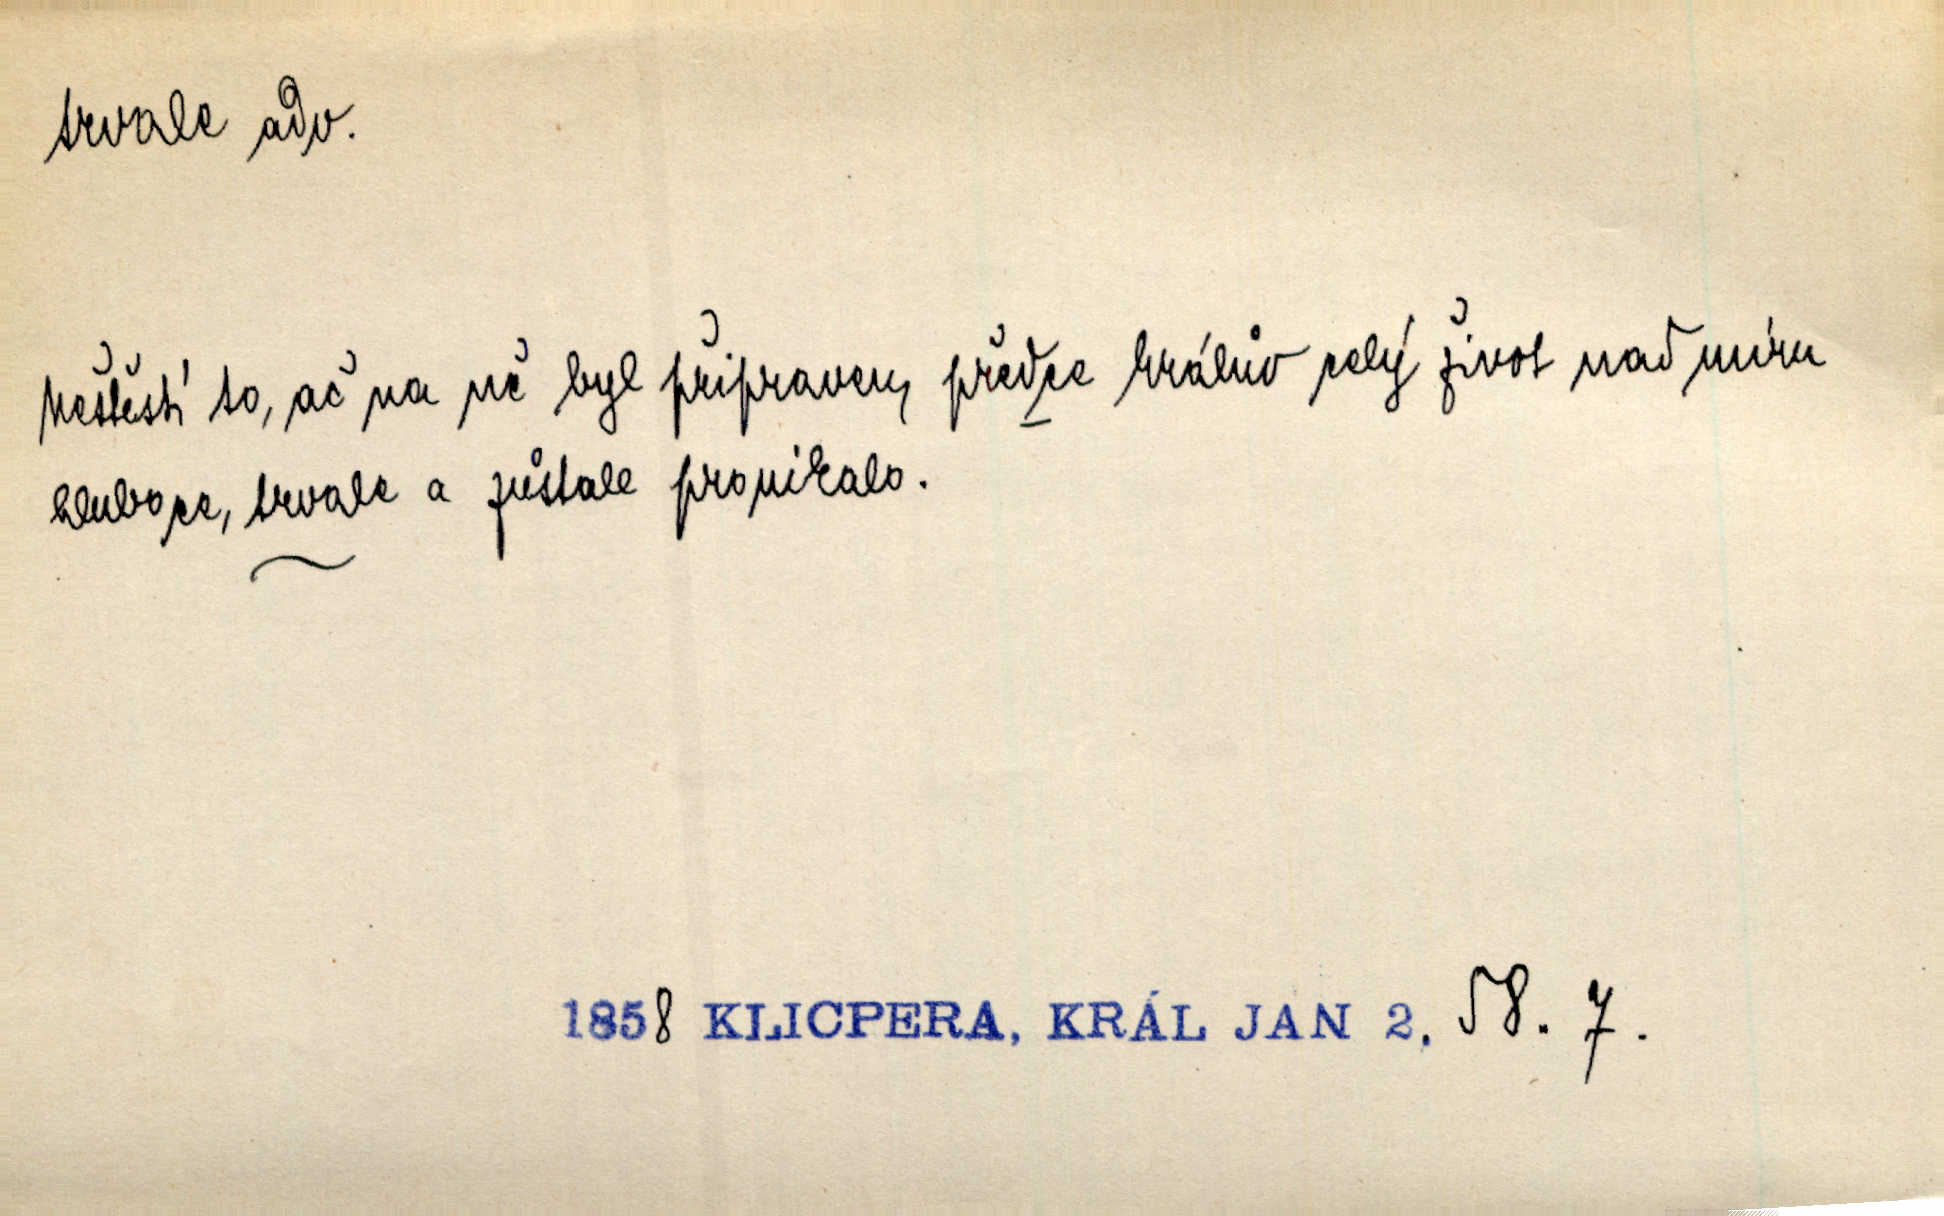 trvale adv.
Neštěstí to, ač na ně byl připraven, předce králův celý život nad míru
hluboce, trvale a zůstale pronikalo.
1858 KLICPERA, KRÁL JAN 2, 58. 7.